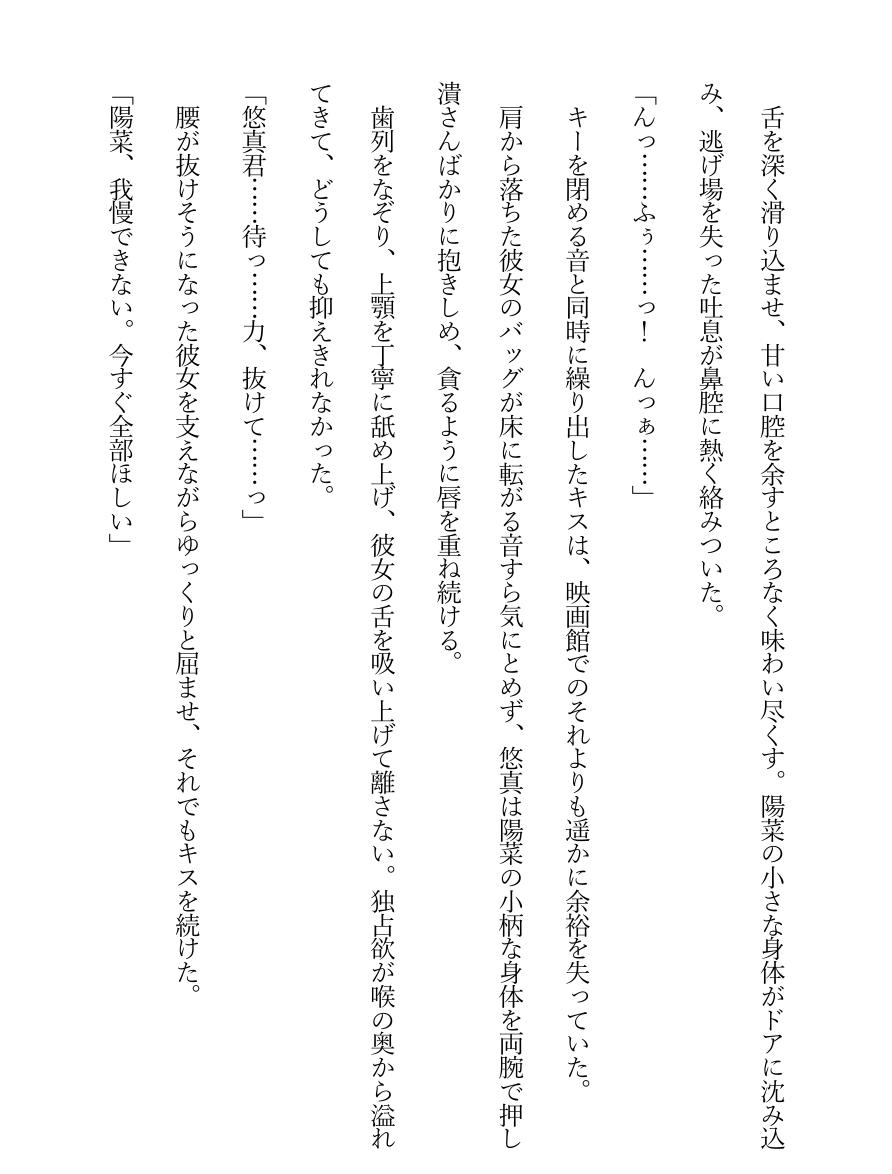 舌を深く滑り込ませ、甘い口腔を余すところなく味わい尽くす。陽菜の小さな身体がドアに沈み込
み、逃げ場を失った吐息が鼻腔に熱く絡みついた。
「んっ……ふぅ……っ！　んっぁ……」
　キーを閉める音と同時に繰り出したキスは、映画館でのそれよりも遥かに余裕を失っていた。
　肩から落ちた彼女のバッグが床に転がる音すら気にとめず、悠真は陽菜の小柄な身体を両腕で押し
潰さんばかりに抱きしめ、貪るように唇を重ね続ける。
　歯列をなぞり、上顎を丁寧に舐め上げ、彼女の舌を吸い上げて離さない。独占欲が喉の奥から溢れ
てきて、どうしても抑えきれなかった。
「悠真君……待っ……力、抜けて……っ」
　腰が抜けそうになった彼女を支えながらゆっくりと屈ませ、それでもキスを続けた。
「陽菜、我慢できない。今すぐ全部ほしい」